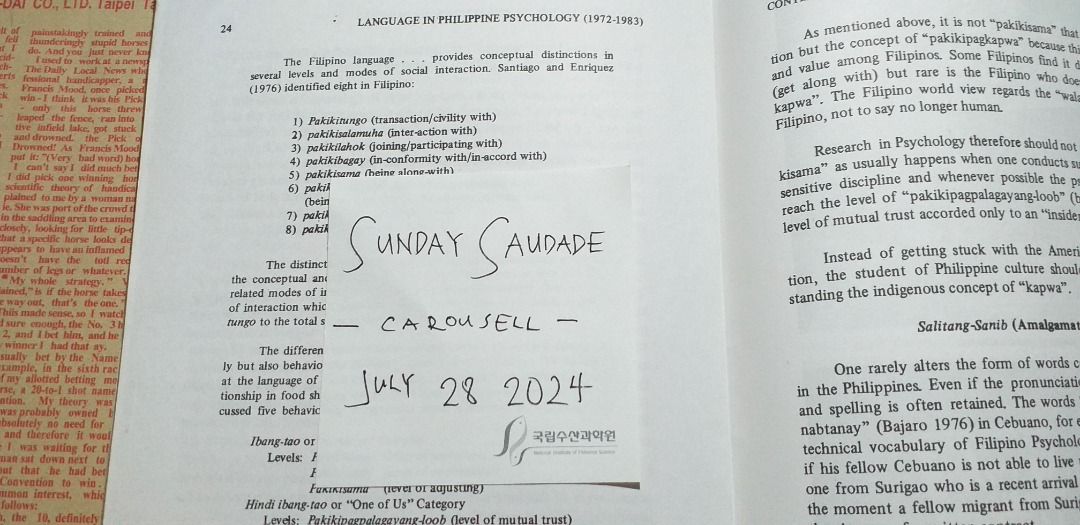 -DAT CO., LTD. Taipei
painstakingly trained and
thunderingly stupid horses
do. And you just never
I used to work at a
The Daily Local News who
fessional handicapper, a
Francis Mood, once picked
win - I think it was his Pick
- only this horse threw
leaped the fence, ran into
tive infield lake, got stuck
and drowned. the Pick
Drowned! As Francis Mood
put it: "(Very bad word)
I can't say I did much
I did pick one winning
scientific theory of
plained to me by a woman
She was part of the crowd
in the saddling area to
closely, looking for little
that a specific horse looks
to have an inflamed
have the
number of legs or whatever.
"My whole strategy."
is if the horse takes
way out, that's the one."
This made sense, so I
sure enough, the No.
2, and I bet him, and he
winner I had that
bet by the Name
in the sixth
my allotted betting
a 20-to-1 shot
My theory was
was probably owned
absolutely no need for
and therefore it
I was waiting for
man sat down next to
that he had bet
Convention to win.
interest,
follows:
the 10, definitely
24
LANGUAGE IN PHILIPPINE PSYCHOLOGY (1972-1983)
The Filipino language . . . provides conceptual distinctions in
several levels and modes of social interaction. Santiago and Enriquez
(1976) identified eight in Filipino:
1) Pakikitungo (transaction/civility with)
2) pakikisalamuha (inter-action with)
3) pakikilahok (joining/participating with)
4) pakikibagay (in-conformity with/in-accord with)
5) pakikisama (being along-with)
6)
7)
8)
SUNDAY SAUDADE
— CAROUSELL —
JULY 28 2024
국립수산과학원
National Institute of Fisheries Science
The distinct
the conceptual
related modes of
of interaction
tungo to the total
The differen
ly but also behavio
at the language of
tionship in food sh
cussed five behavic
Ibang-tao or
Levels:
Pakikisama (level of adjusting)
Hindi ibang-tao or "One of Us" Category
Levels: Pakikipagpalagayang-loob (level of mutual trust)
As mentioned above, it is not "pakikisama" that
tion but the concept of "pakikipagkapwa" because
and value among Filipinos. Some Filipinos find it
(get along with) but rare is the Filipino who
kapwa". The Filipino world view regards the
Filipino, not to say no longer human.
Research in Psychology therefore should not
kisama" as usually happens when one conducts
sensitive discipline and whenever possible the
reach the level of "pakikipagpalagayang-loob"
level of mutual trust accorded only to an "insider
Instead of getting stuck with the
tion, the student of Philippine culture
standing the indigenous concept of "kapwa".
Salitang-Sanib
One rarely alters the form of words
in the Philippines. Even if the
and spelling is often retained. The words
nabtanay" (Bajaro 1976) in Cebuano, for
technical vocabulary of Filipino
if his fellow Cebuano is not able to live
one from Surigao who is a recent arrival
the moment a fellow migrant from